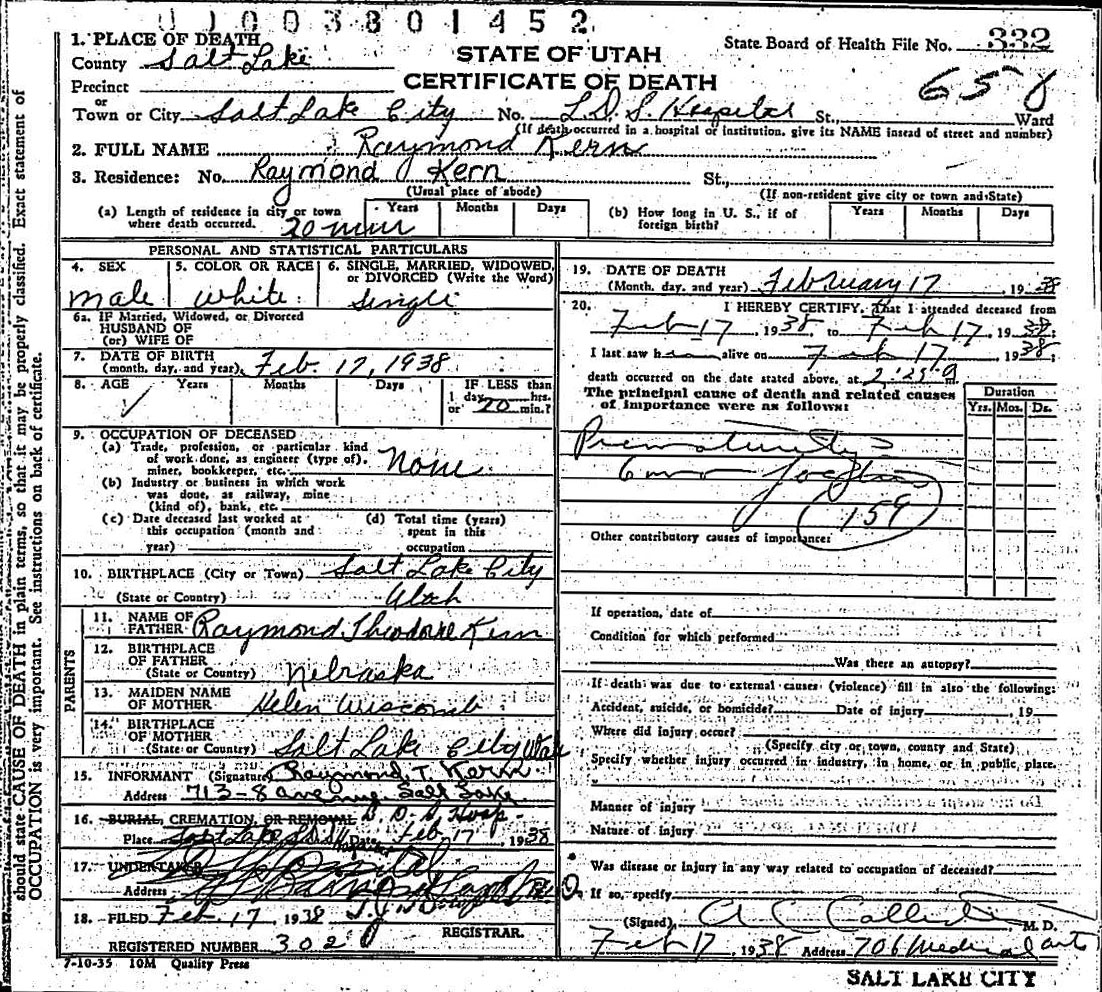 01003801452
1. PLACE OF DEATH
STATE OF UTAH
State Board of Health File No. 332
County Salt Lake
CERTIFICATE OF DEATH
658
Precinct
or
Town or City Salt Lake City No. L.D.S. Hospital St., Ward
(If death occurred in a hospital or institution, give its NAME insead of street and number)
2. FULL NAME Raymond Kern
3. Residence: No. Raymond Kern St.,
(Usual place of abode) (If non-resident give city or town and State)
(a) Length of residence in city or town where death occurred. Years Months Days
20 min
(b) How long in U. S., if of foreign birth? Years Months Days
PERSONAL AND STATISTICAL PARTICULARS
4. SEX 5. COLOR OR RACE 6. SINGLE, MARRIED, WIDOWED, or DIVORCED (Write the Word)
male white single
6a. IF Married, Widowed, or Divorced
HUSBAND OF
(or) WIFE OF
7. DATE OF BIRTH
(month, day, and year) Feb. 17, 1938
8. AGE Years Months Days IF LESS than
1 day hrs.
or 20 min.?
9. OCCUPATION OF DECEASED
(a) Trade, profession, or particular kind
of work done, as engineer (type of),
miner, bookkeeper, etc. None
(b) Industry or business in which work
was done, as railway, mine
(kind of), bank, etc.
(c) Date deceased last worked at
this occupation (month and
year)
(d) Total time (years)
spent in this
occupation
10. BIRTHPLACE (City or Town) Salt Lake City
(State or Country) Utah
PARENTS
11. NAME OF
FATHER Raymond Theodore Kern
12. BIRTHPLACE
OF FATHER
(State or Country) Nebraska
13. MAIDEN NAME
OF MOTHER Helen Wiscomb
14. BIRTHPLACE
OF MOTHER
(State or Country) Salt Lake City
15. INFORMANT (Signature) Raymond T. Kern
Address 713-8 avenue, Salt Lake
16. BURIAL, CREMATION, OR REMOVAL L. D. S. Hosp
Place Salt Lake L.D.S. Date Feb 17, 1938
17. UNDERTAKER
Address
18. FILED Feb 17 1938
REGISTRAR.
REGISTERED NUMBER 302
7-10-35 10M Quality Press
19. DATE OF DEATH
(Month, day, and year) February 17, 1938
20. I HEREBY CERTIFY, That I attended deceased from
Feb 17, 1938 to Feb 17, 1938;
I last saw h alive on Feb 17, 1938;
death occurred on the date stated above, at 2:25 m.
The principal cause of death and related causes
of importance were as follows:
Duration
Yrs. Mos. Ds.
Prematurity
6 mo
159
Other contributory causes of importance:
If operation, date of
Condition for which performed
Was there an autopsy?
If death was due to external causes (violence) fill in also the following:
Accident, suicide, or homicide? Date of injury , 19
Where did injury occur?
(Specify city or town, county and State)
Specify whether injury occurred in industry, in home, or in public place.
Manner of injury
Nature of injury
Was disease or injury in any way related to occupation of deceased?
If so, specify
(Signed) M. D.
Feb 17, 1938 Address 706 Medical arts
SALT LAKE CITY
should state CAUSE OF DEATH in plain terms, so that it may be properly classified. Exact statement of
OCCUPATION is very important. See instructions on back of certificate.